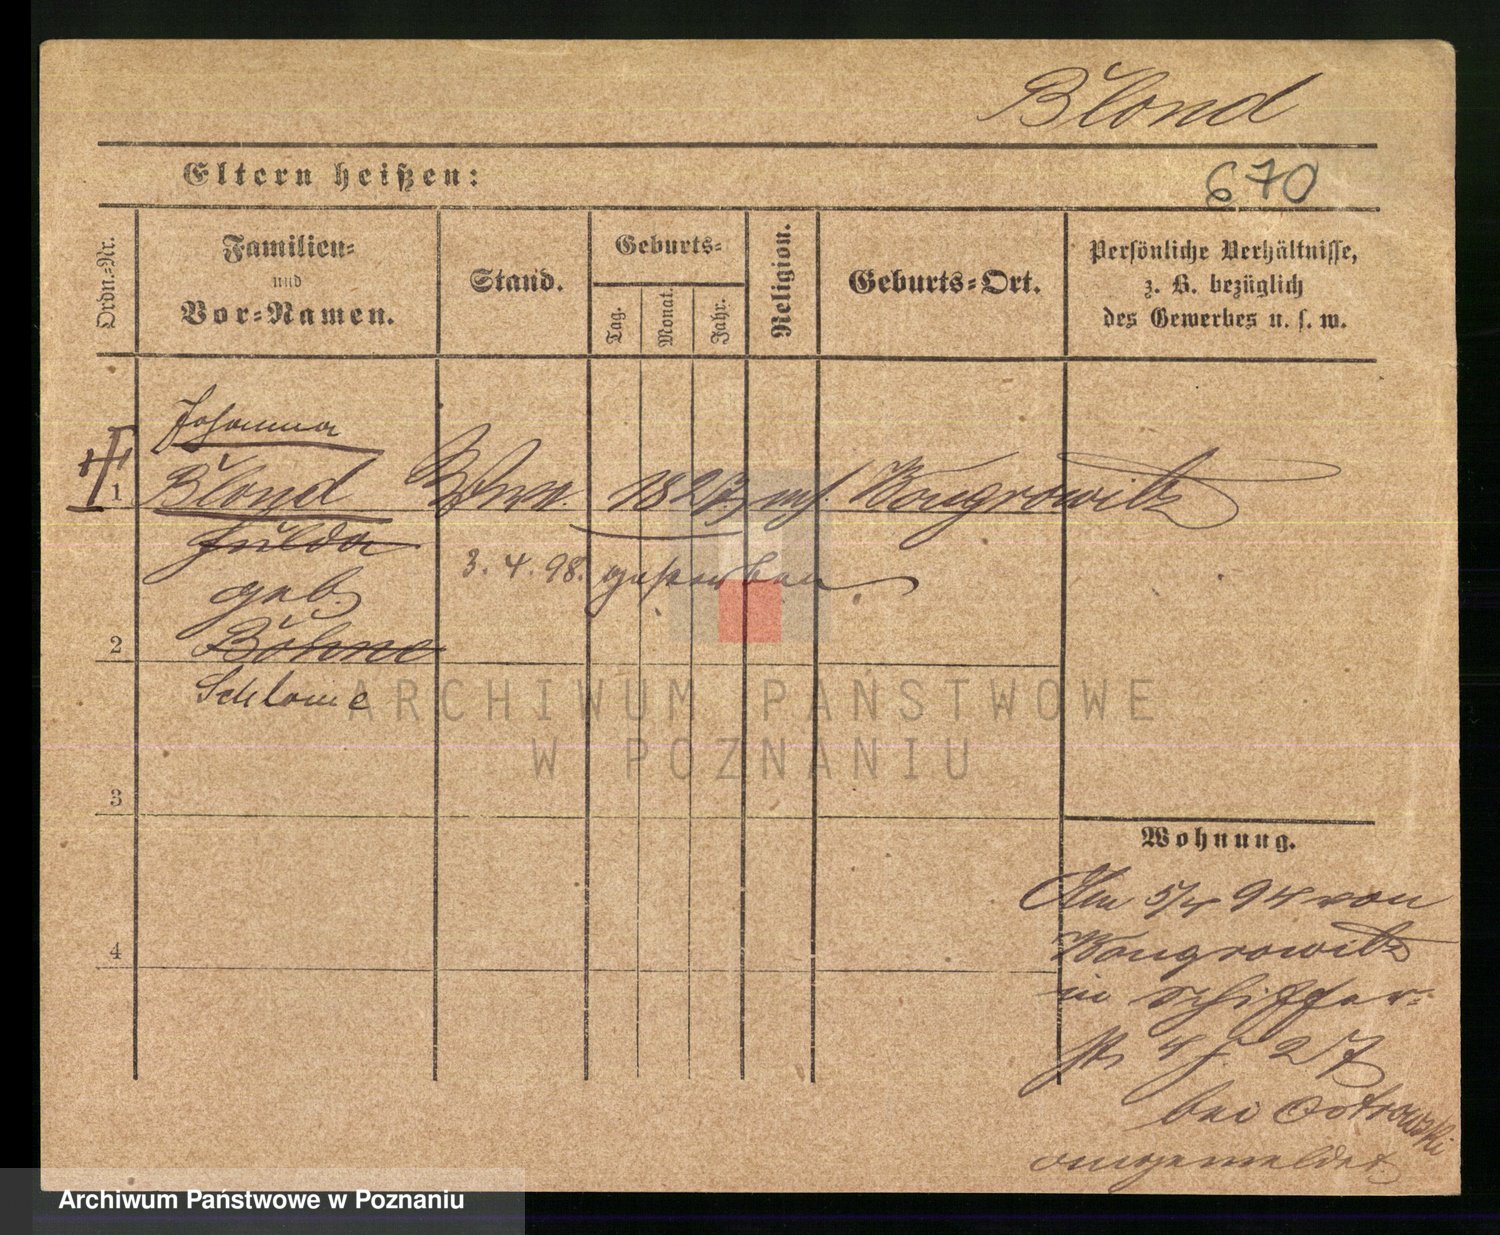 Blond
Eltern heißen:
670
Ordn.-Nr.
Familien-
und
Vor-Namen.
Stand.
Geburts-
Tag.
Monat.
Jahr.
Religion.
Geburts-Ort.
Persönliche Verhältnisse,
z. B. bezüglich
des Gewerbes u. s. w.
Johanna
1 Blond Wwe. 1823 mos. Kongrowitz
Hulda
geb. 3. 4. 98. gestorben
2 Böhne
Schlome
ARCHIWUM PAŃSTWOWE
W POZNANIU
3
Wohnung.
Am 5/4 94 von
4 Kongrowitz
in Schiffer-
str 4 J. 27
bei Ostrowski
angemeldet
Archiwum Państwowe w Poznaniu